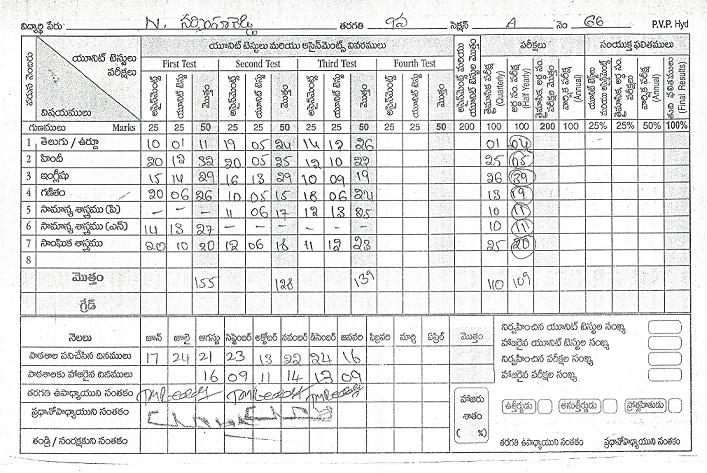 విద్యార్థి పేరు : N. తరగతి 9వ సెక్షన్ A నెం 66 P.V.P. Hyd
యూనిట్ టెస్టులు పరీక్షలు విషయములు యూనిట్ టెస్టులు మరియు అసైన్‌మెంట్స్ వివరములు పరీక్షలు సంయుక్త ఫలితములు
First Test Second Test Third Test Fourth Test
అసైన్‌మెంట్స్ యూనిట్ టెస్టు మొత్తం అసైన్‌మెంట్స్ యూనిట్ టెస్టు మొత్తం అసైన్‌మెంట్స్ యూనిట్ టెస్టు మొత్తం అసైన్‌మెంట్స్ యూనిట్ టెస్టు మొత్తం (Quarterly) (Half Yearly) వార్షిక పరీక్ష (Annual) వార్షిక పరీక్ష (Annual) (Final Results)
గుణములు Marks 25 25 50 25 25 50 25 25 50 25 25 50 200 100 100 200 100 25% 25% 50% 100%
1 తెలుగు / ఉర్దూ 10 01 11 19 05 24 14 12 26 01 04
2 హిందీ 20 12 32 20 05 25 12 10 22 25
3 ఇంగ్లీషు 15 14 29 16 13 29 10 09 19 26 39
4 గణితం 20 06 26 10 05 15 18 06 24 13 19
5 సామాన్య శాస్త్రము (పి) - - - 11 06 17 12 13 25 10 11
6 సామాన్య శాస్త్రము (ఎన్) 14 13 27 - - - 10 11
7 సాంఘిక శాస్త్రము 20 10 30 12 06 18 11 12 23 25 20
8
మొత్తం 155 128 139 110 109
గ్రేడ్
నెలలు జూన్ జూలై ఆగస్టు సెప్టెంబర్ అక్టోబర్ నవంబర్ డిసెంబర్ జనవరి ఫిబ్రవరి మార్చి ఏప్రిల్ మొత్తం
పాఠశాల పనిచేసిన దినములు 17 24 21 23 13 22 24 16
పాఠశాలకు హాజరైన దినములు 16 09 11 14 13 09
తరగతి ఉపాధ్యాయుని సంతకం
ప్రధానోపాధ్యాయుని సంతకం
తండ్రి / సంరక్షకుని సంతకం
హాజరు శాతం ( %)
నిర్వహించిన యూనిట్ టెస్టుల సంఖ్య
హాజరైన యూనిట్ టెస్టుల సంఖ్య
నిర్వహించిన పరీక్షల సంఖ్య
హాజరైన పరీక్షల సంఖ్య
ఉత్తీర్ణుడు అనుత్తీర్ణుడు ప్రోత్సహితుడు
తరగతి ఉపాధ్యాయుని సంతకం ప్రధానోపాధ్యాయుని సంతకం